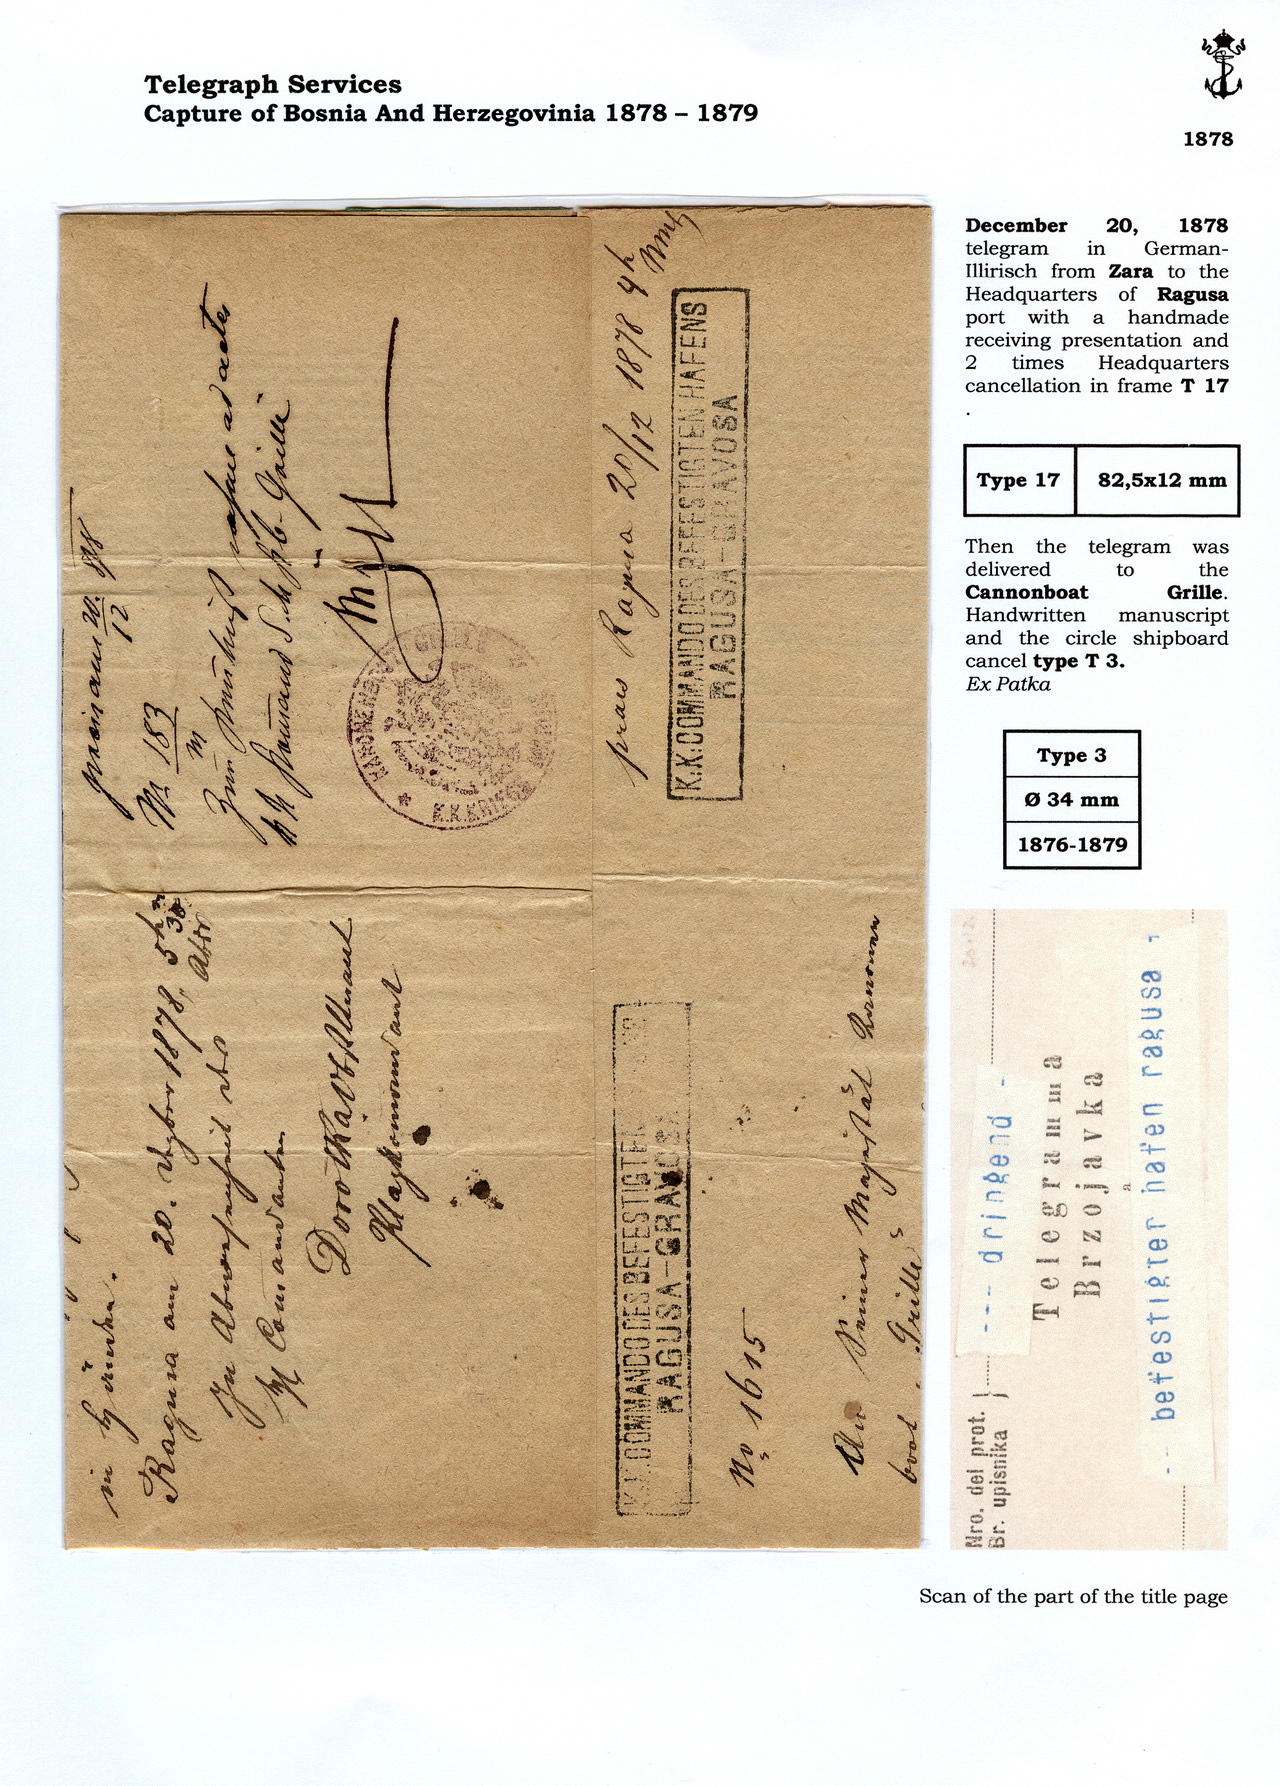 Telegraph Services
Capture of Bosnia And Herzegovinia 1878 – 1879
1878
December 20, 1878
telegram in German-
Illirisch from Zara to the
Headquarters of Ragusa
port with a handmade
receiving presentation and
2 times Headquarters
cancellation in frame T 17
.
Type 17 82,5x12 mm
Then the telegram was
delivered to the
Cannonboat Grille.
Handwritten manuscript
and the circle shipboard
cancel type T 3.
Ex Patka
Type 3
Ø 34 mm
1876-1879
Nro. del prot.
Br. upisnika
--- dringend -
Telegramma
Brzojavka
-- befestigter hafen ragusa -
Scan of the part of the title page
20. 878
12
No 183
ad acta
Grille
K.K.KRIEGS
praes Ragusa 20/12 1878 4h
K.K. COMMANDO DES BEFESTIGTEN HAFENS
RAGUSA-GRAVOSA
in Händen.
Ragusa am 20. Dezber 1878, 5h
30
In Abwesenheit des
Comandanten
K.K. COMMANDO DES BEFESTIGTEN
RAGUSA-GRAVOSA
No 1615
An Seiner Majestät Kanonen
boot Grille